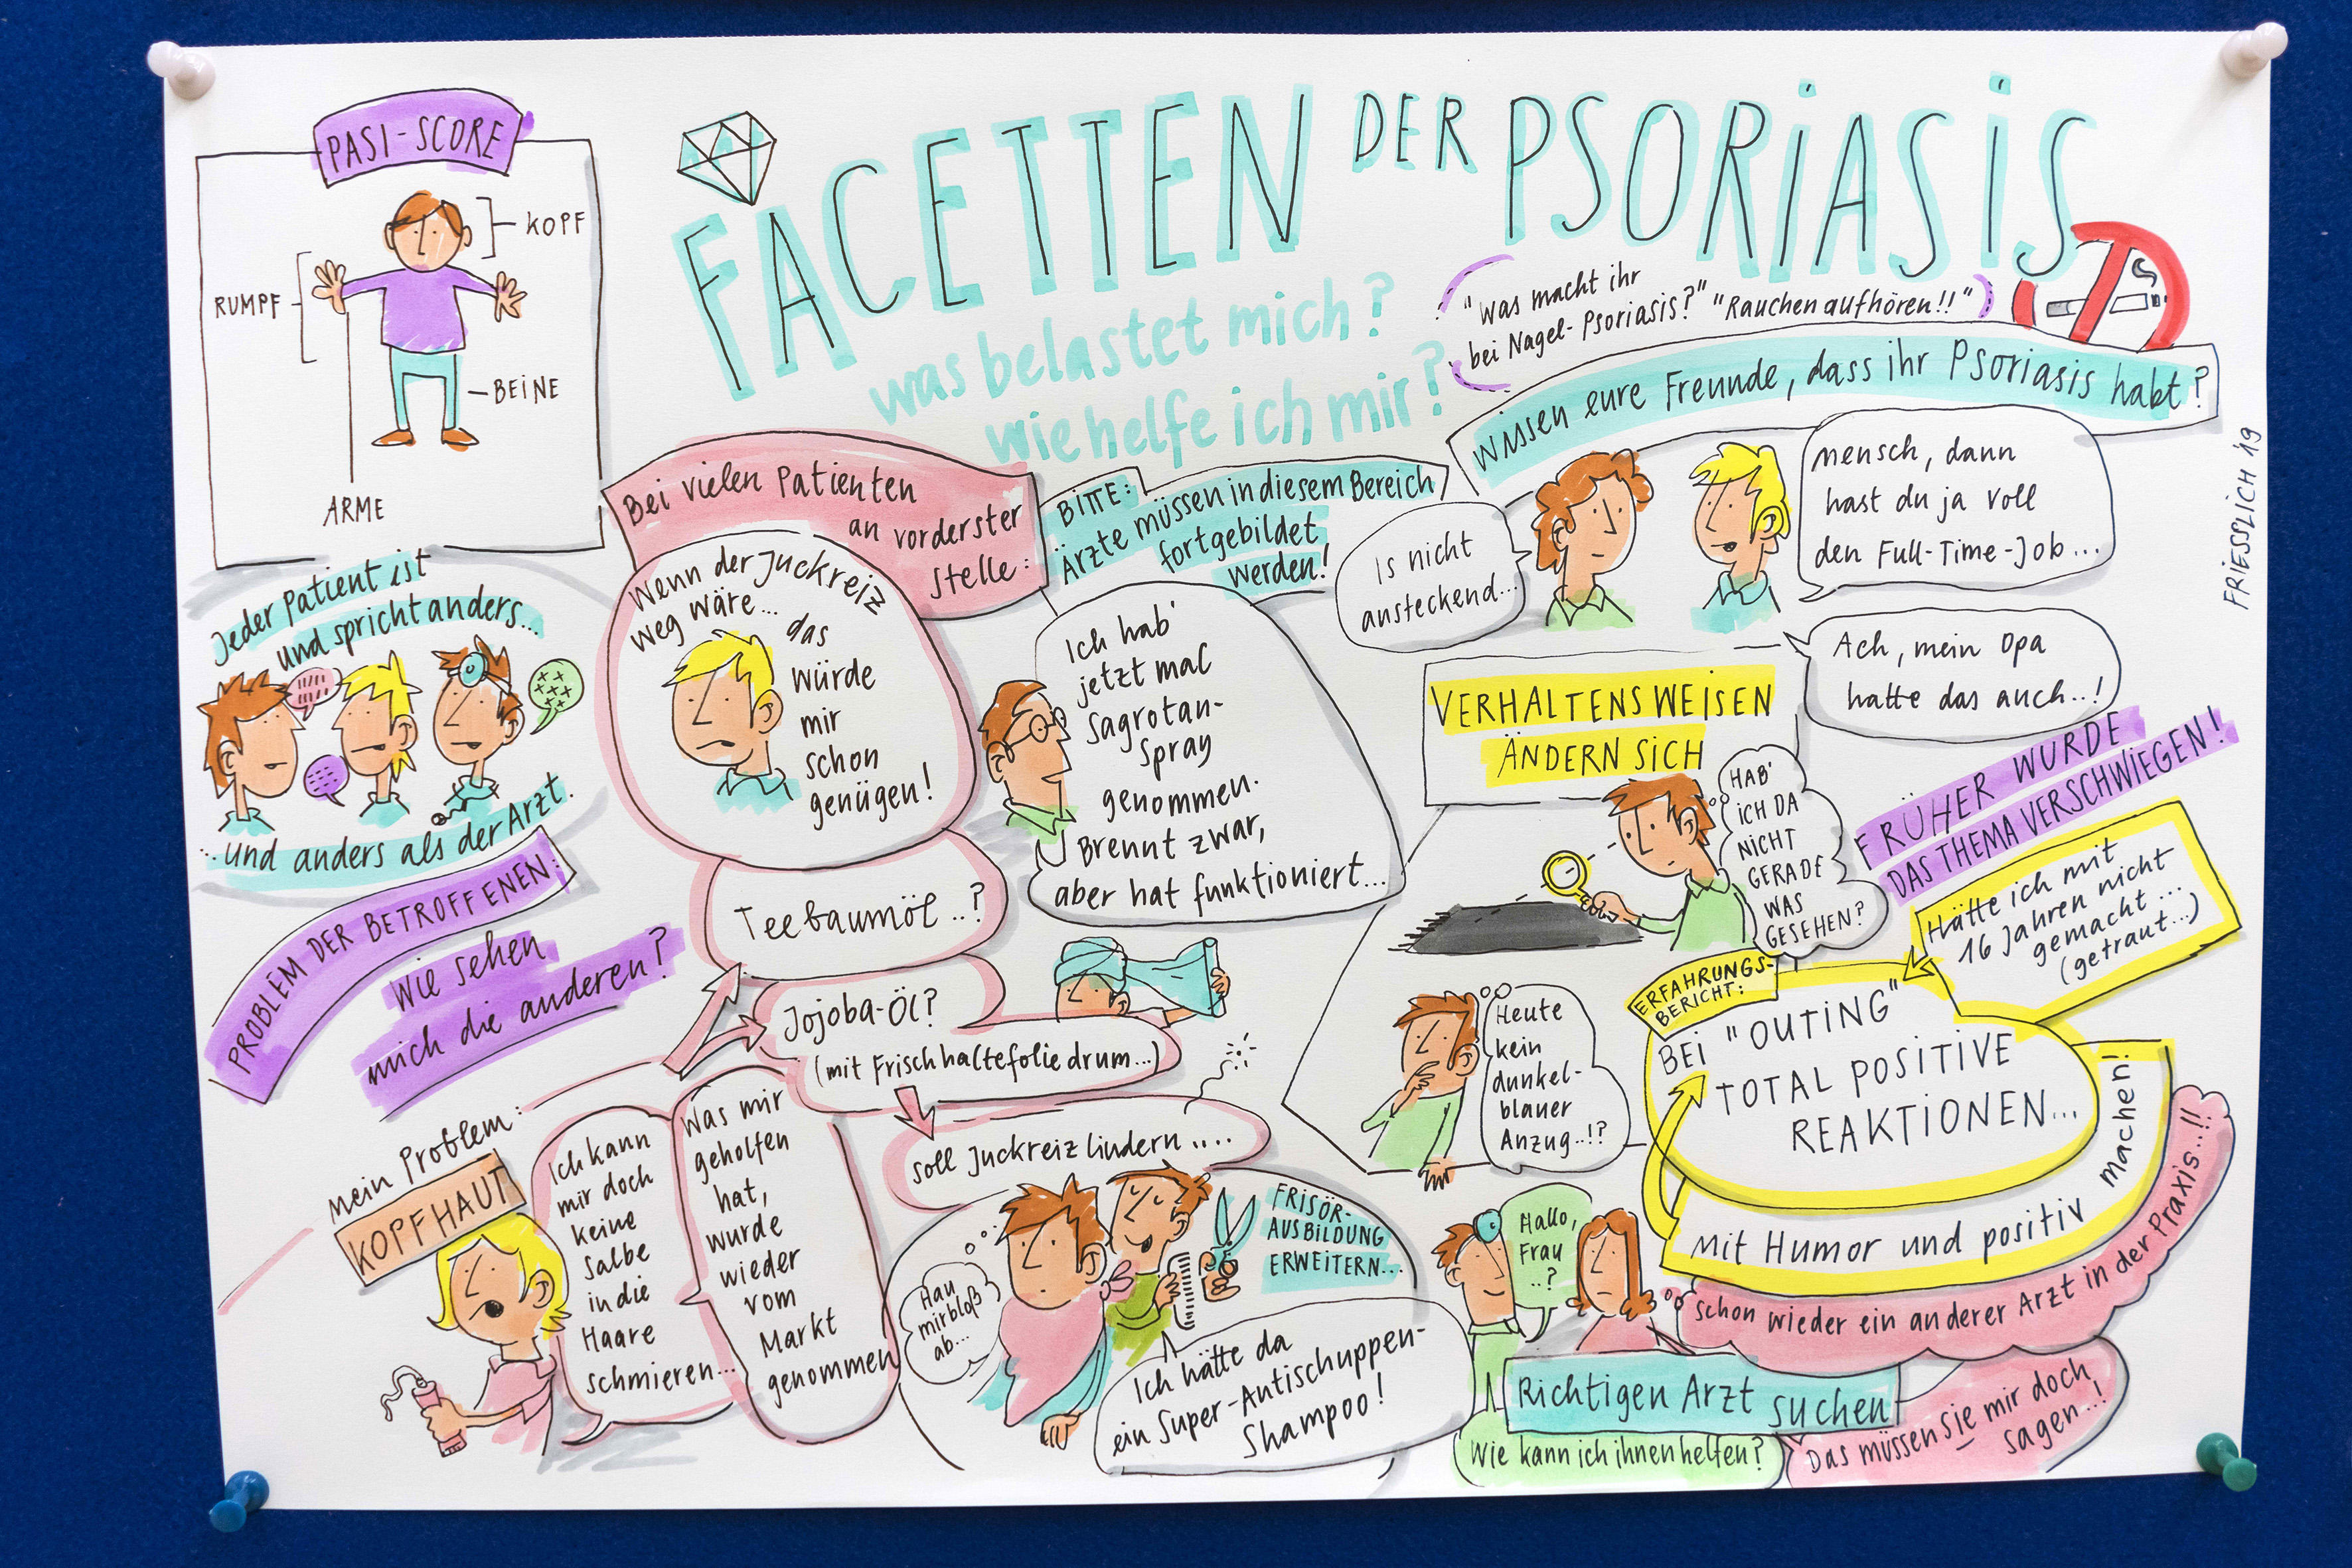 PASI-SCORE
KOPF
RUMPF
BEINE
ARME
FACETTEN DER PSORIASIS
was belastet mich?
wie helfe ich mir?
"Was macht ihr
bei Nagel-Psoriasis?" "Rauchen aufhören!!"
Wissen eure Freunde, dass ihr Psoriasis habt?
Is nicht
ansteckend...
Mensch, dann
hast du ja voll
den Full-Time-Job...
Ach, mein Opa
hatte das auch..!
FRIESSLICH '19
Jeder Patient ist
und spricht anders...
...und anders als der Arzt.
Bei vielen Patienten
an vorderster
Stelle:
Wenn der Juckreiz
weg wäre...
das
würde
mir
schon
genügen!
BITTE:
Ärzte müssen in diesem Bereich
fortgebildet
werden!
Ich hab'
jetzt mal
Sagrotan-
Spray
genommen.
Brennt zwar,
aber hat funktioniert...
VERHALTENSWEISEN
ÄNDERN SICH
HAB'
ICH DA
NICHT
GERADE
WAS
GESEHEN?
Heute
kein
dunkel-
blauer
Anzug..!?
FRÜHER WURDE
DAS THEMA VERSCHWIEGEN!
Hätte ich mit
16 Jahren nicht
gemacht...
(getraut...)
ERFAHRUNGS-
BERICHT:
BEI "OUTING"
TOTAL POSITIVE
REAKTIONEN...
Mit Humor und positiv machen!
PROBLEM DER BETROFFENEN:
Wie sehen
mich die anderen?
Mein Problem:
KOPFHAUT
Ich kann
mir doch
keine
Salbe
in die
Haare
schmieren...
Was mir
geholfen
hat,
wurde
wieder
vom
Markt
genommen
Teebaumöl..?
Jojoba-Öl?
(mit Frischhaltefolie drum...)
Soll Juckreiz lindern....
Hau
mir bloß
ab...
FRISÖR-
AUSBILDUNG
ERWEITERN...
Ich hätte da
ein Super-Antischuppen-
Shampoo!
Hallo,
Frau
..?
Schon wieder ein anderer Arzt in der Praxis..!!
Richtigen Arzt suchen
Wie kann ich ihnen helfen?
Das müssen Sie mir doch
sagen..!